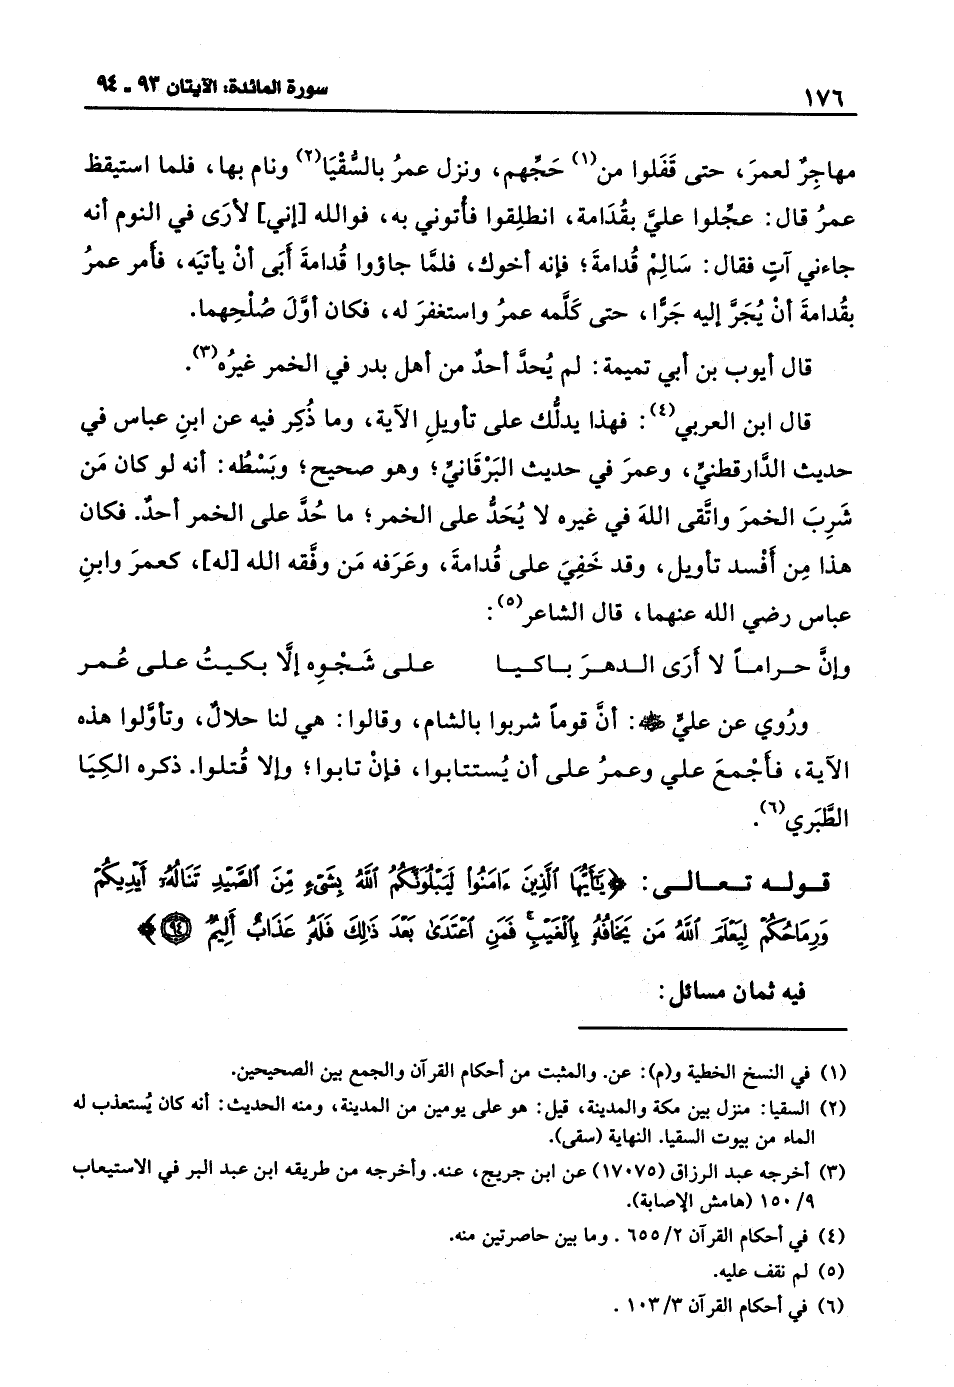 ١٧٦ سورة المائدة: الآيتان ٩٣ ـ ٩٤
مهاجِرٌ لعمرَ، حتى قَفَلوا من(١) حَجِّهم، ونزل عمرُ بالسُّقْيَا(٢) ونام بها، فلما استيقظ
عمرُ قال: عجِّلوا عليَّ بقُدَامة، انطلِقوا فأْتوني به، فوالله [إني] لأرَى في النوم أنه
جاءني آتٍ فقال: سَالِمْ قُدامةَ؛ فإنه أخوك، فلمَّا جاؤوا قُدامةَ أبَى أنْ يأتيَه، فأمر عمرُ
بقُدامةَ أنْ يُجَرَّ إليه جَرًّا، حتى كَلَّمه عمرُ واستغفرَ له، فكان أوَّلَ صُلْحِهما.
قال أيوب بن أبي تميمة: لم يُحدَّ أحدٌ من أهل بدر في الخمر غيرُه(٣).
قال ابن العربي(٤): فهذا يدلُّك على تأويلِ الآية، وما ذُكِر فيه عن ابنِ عباس في
حديث الدَّارقطنيِّ، وعمرَ في حديث البَرْقانيِّ؛ وهو صحيح؛ وبَسْطُه: أنه لو كان مَن
شَرِبَ الخمرَ واتَّقى اللهَ في غيره لا يُحَدُّ على الخمر؛ ما حُدَّ على الخمر أحدٌ. فكان
هذا مِن أَفْسد تأويل، وقد خَفِيَ على قُدامةَ، وعَرَفه مَن وفَّقه الله [له]، كعمرَ وابنِ
عباس رضي الله عنهما، قال الشاعر(٥):
وإنَّ حراماً لا أرَى الدهرَ باكيا على شَجْوِه إلَّا بكيتُ على عُمر
ورُوي عن عليٍّ ﷺ: أنَّ قوماً شربوا بالشام، وقالوا: هي لنا حلالٌ، وتأوَّلوا هذه
الآية، فأجْمعَ علي وعمرُ على أن يُستتابوا، فإنْ تابوا؛ وإلا قُتلوا. ذكره الكِيَا
الطَّبَري(٦).
قوله تعالى: ﴿يَٰٓأَيُّهَا ٱلَّذِينَ ءَامَنُوا۟ لَيَبْلُوَنَّكُمُ ٱللَّهُ بِشَىْءٍ مِّنَ ٱلصَّيْدِ تَنَالُهُۥٓ أَيْدِيكُمْ
وَرِمَاحُكُمْ لِيَعْلَمَ ٱللَّهُ مَن يَخَافُهُۥ بِٱلْغَيْبِ ۚ فَمَنِ ٱعْتَدَىٰ بَعْدَ ذَٰلِكَ فَلَهُۥ عَذَابٌ أَلِيمٌ ٩٤﴾
فيه ثمان مسائل:
(١) في النسخ الخطية و(م): عن. والمثبت من أحكام القرآن والجمع بين الصحيحين.
(٢) السقيا: منزل بين مكة والمدينة، قيل: هو على يومين من المدينة، ومنه الحديث: أنه كان يُستعذب له
الماء من بيوت السقيا. النهاية (سقى).
(٣) أخرجه عبد الرزاق (١٧٠٧٥) عن ابن جريج، عنه. وأخرجه من طريقه ابن عبد البر في الاستيعاب
٩/ ١٥٠ (هامش الإصابة).
(٤) في أحكام القرآن ٢/ ٦٥٥ . وما بين حاصرتين منه.
(٥) لم نقف عليه.
(٦) في أحكام القرآن ٣/ ١٠٣ .